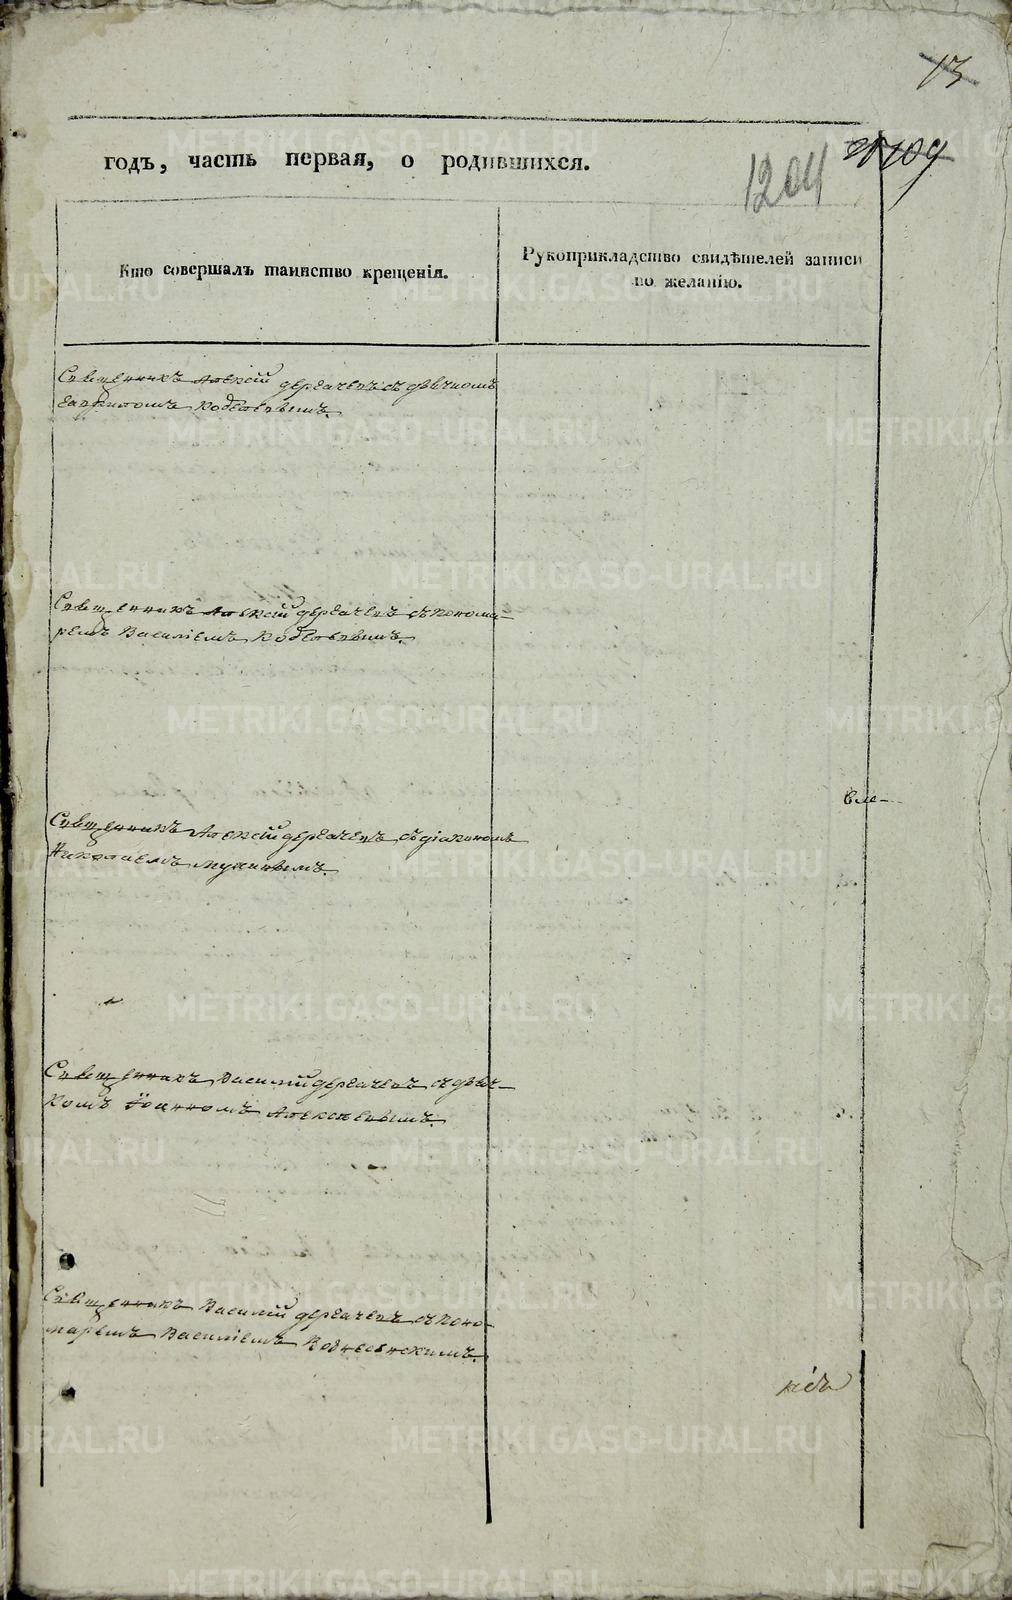 13
109
1204
годъ, часть первая, о родившихся.
Кто совершалъ таинство крещенія.
Рукоприкладство свидѣтелей записи
по желанію.
Священникъ Алексій Дергачевъ съ дьячкомъ
Священникъ Алексій Дергачевъ съ понома-
ремъ Василіемъ
Священникъ Алексій Дергачевъ съ діакономъ
Николаемъ Мухинымъ.
Священникъ Василій Дергачевъ съ дьяч-
комъ Іоанномъ Алексѣевымъ.
Священникъ Василій Дергачевъ съ поно-
маремъ Василіемъ
METRIKI.GASO-URAL.RU